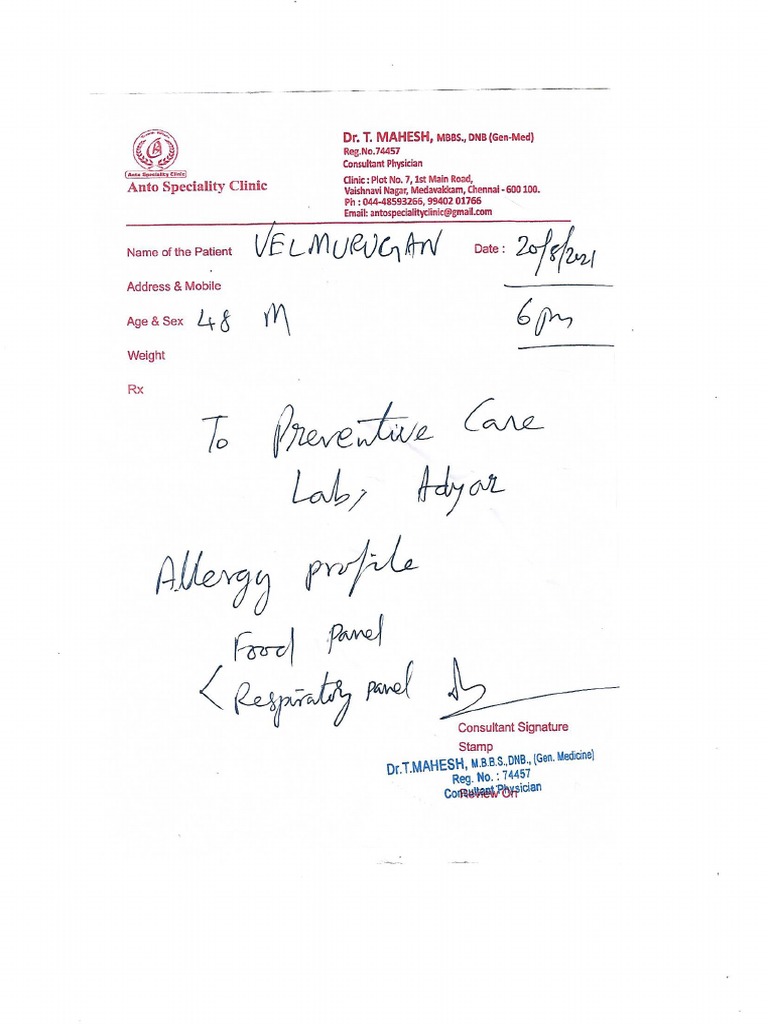 Anto Speciality Clinic
Anto Speciality Clinic
Dr. T. MAHESH, MBBS., DNB (Gen-Med)
Reg.No.74457
Consultant Physician
Clinic : Plot No. 7, 1st Main Road,
Vaishnavi Nagar, Medavakkam, Chennai - 600 100.
Ph : 044-48593266, 99402 01766
Email: antospecialityclinic@gmail.com
Name of the Patient VELMURUGAN Date : 20/8/2021
Address & Mobile
Age & Sex 48 M 6 pm
Weight
Rx
To Preventive Care
Lab, Adyar
Allergy profile
Food Panel
< Respiratory panel
Consultant Signature
Stamp
Dr.T.MAHESH, M.B.B.S.,DNB., (Gen. Medicine)
Reg. No. : 74457
Consultant Physician
Review On